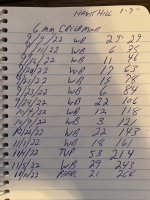 HAWK HILL 1-3"
6 mm CREEDMOOR
8/9/22 WB 29 29
9/11/22 WB 6 35
9/16/22 WB 11 46
9/20/22 WB 17 63
9/21/22 WB 15 78
9/23/22 WB 6 84
9/24/22 WB 22 106
9/22 WB 12 118
10/22 WB 3 121
10/22 WB 22 143
11/22 WB 18 161
10/22 TVP 53 214
11/5/22 WB 29 243
11/22 21 264